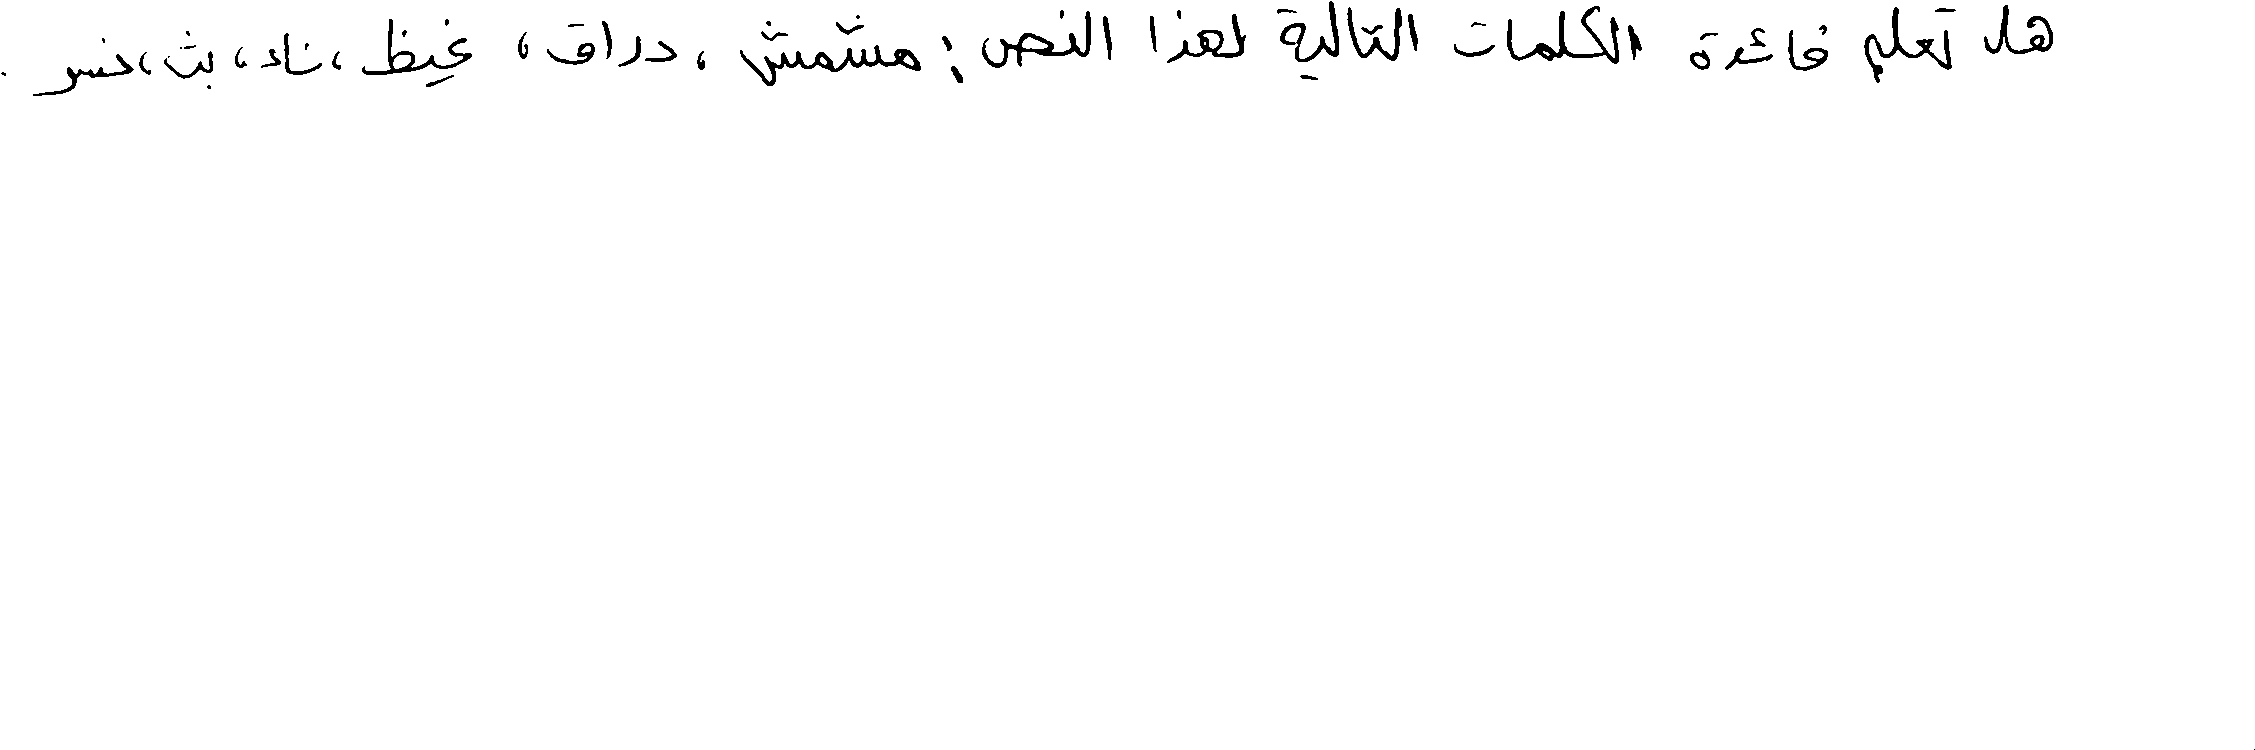 هل تعلم فائدة الكلمات التالية لهذا النص: مشمش، دراق، غيظ، ناء، بث، خسر.